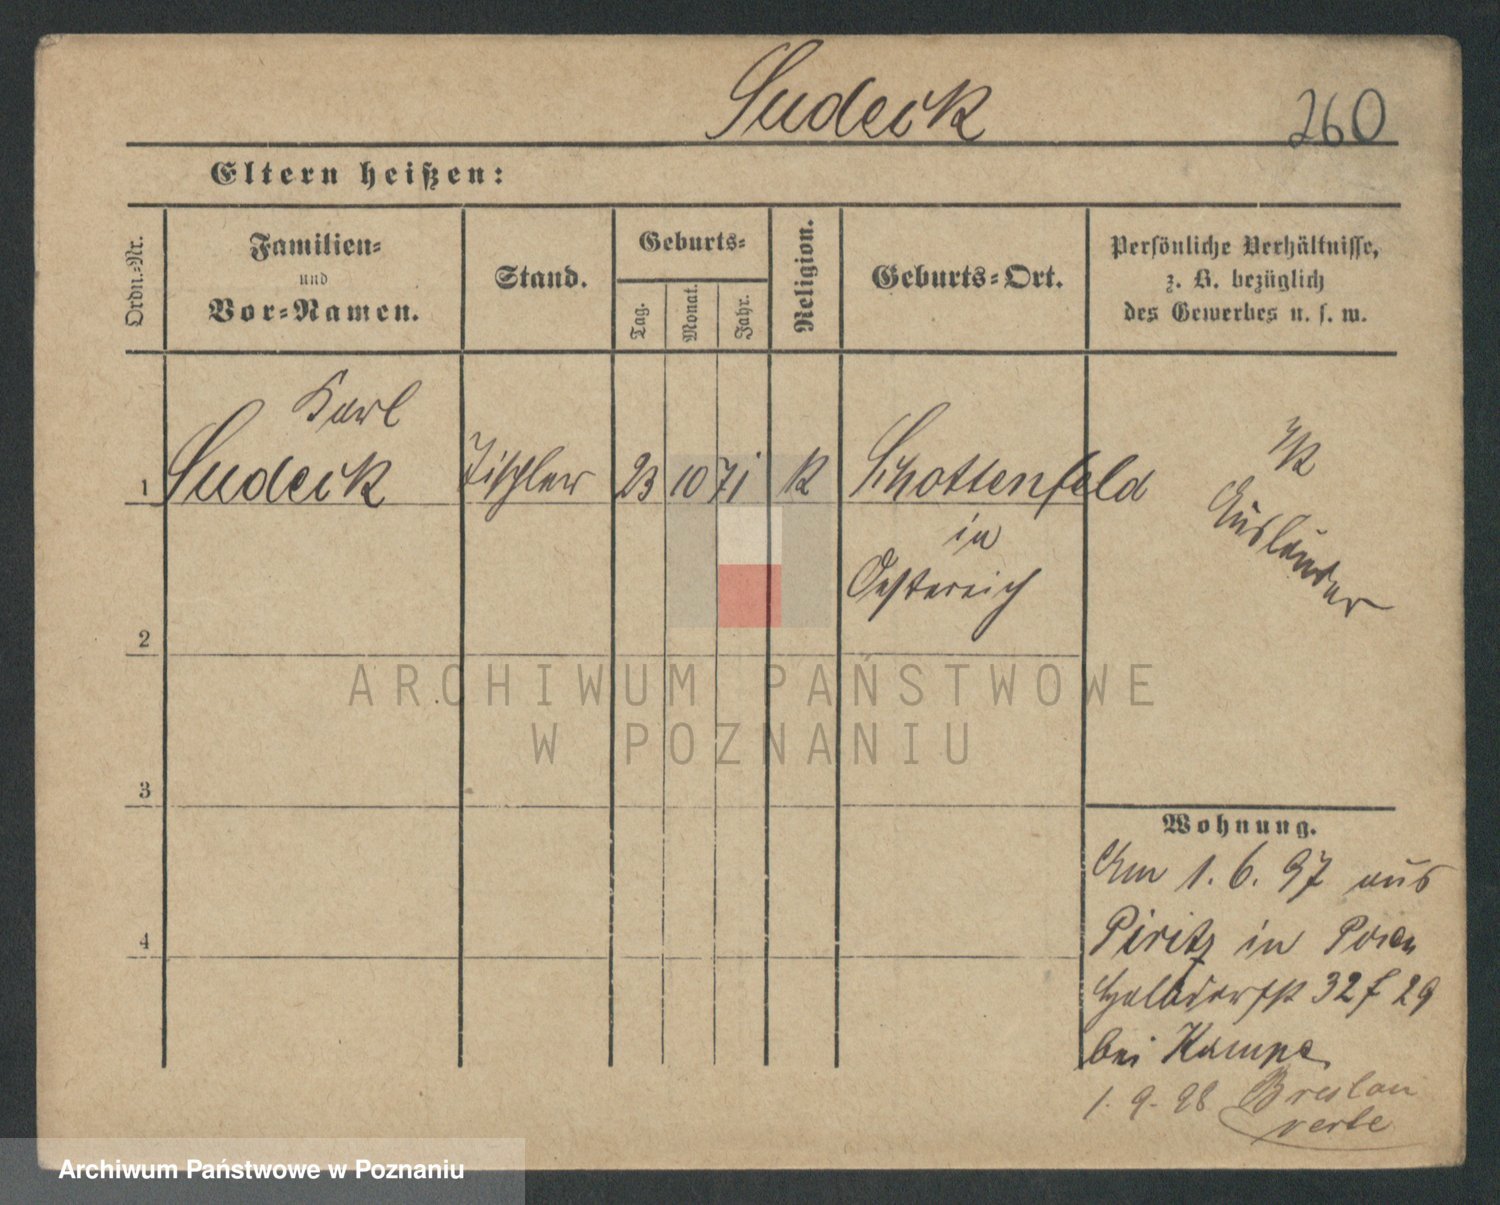 Sudeck 260
Eltern heißen:
Ordn.-Nr.
Familien-
und
Vor-Namen.
Stand.
Geburts-
Tag.
Monat.
Jahr.
Religion.
Geburts-Ort.
Persönliche Verhältnisse,
z. B. bezüglich
des Gewerbes u. s. w.
Karl
1 Sudeck Tischler 23 10 71 K Schottenfeld
in
Oestereich
Ausländer
2
ARCHIWUM PAŃSTWOWE
W POZNANIU
3
Wohnung.
Am 1. 6. 97 aus
Piritz in Posen
Halbdorfst 32 f 29
4
bei Kampe
1. 9. 98 Breslau
Archiwum Państwowe w Poznaniu